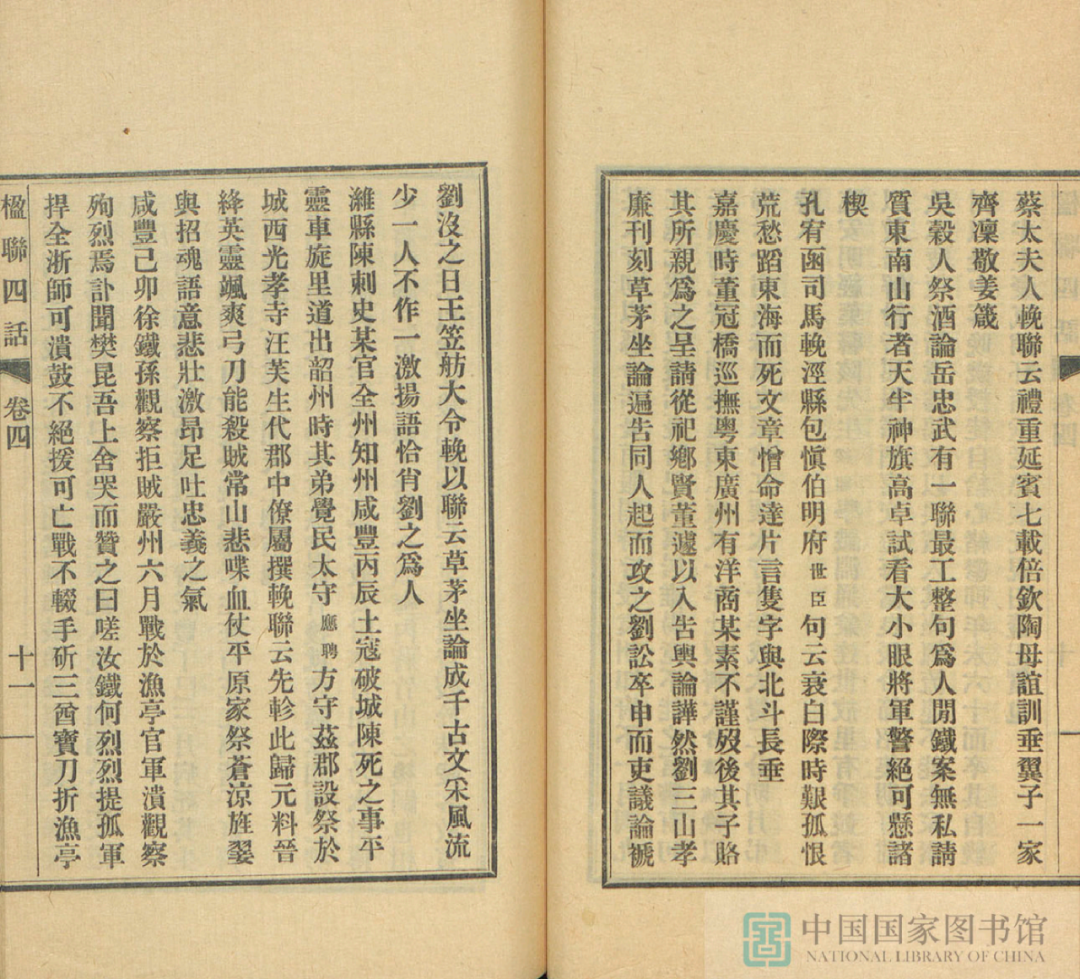 蔡太夫人輓聯云禮重延賓七載倍欽陶母誼訓垂翼子一家
齊凜敬姜箴
吳穀人祭酒論岳忠武有一聯最工整句爲人閒鐵案無私請
質東南山行者天半神旗高卓試看大小眼將軍警絕可懸諸
楔
孔宥函司馬輓涇縣包愼伯明府世臣句云衰白際時艱孤恨
荒愁蹈東海而死文章憎命達片言隻字與北斗長垂
嘉慶時董冠橋巡撫粵東廣州有洋商某素不謹歿後其子賂
其所親爲之呈請從祀鄉賢董遽以入告輿論譁然劉三山孝
廉刊刻草茅坐論遍告同人起而攻之劉訟卒申而吏議論褫
劉沒之日王笠舫大令輓以聯云草茅坐論成千古文采風流
少一人不作一激揚語恰肖劉之爲人
濰縣陳刺史某官全州知州咸豐丙辰土寇破城陳死之事平
靈車旋里道出韶州時其弟覺民太守應聘方守茲郡設祭於
城西光孝寺汪芙生代郡中僚屬撰輓聯云先軫此歸元料晉
絳英靈颯爽弓刀能殺賊常山悲喋血仗平原家祭蒼涼旌翣
與招魂語意悲壯激昂足吐忠義之氣
咸豐己卯徐鐵孫觀察拒賊嚴州六月戰於漁亭官軍潰觀察
殉烈焉訃聞樊昆吾上舍哭而贊之曰嗟汝鐵何烈烈提孤軍
捍全浙師可潰鼓不絕援可亡戰不輟手斫三酋寶刀折漁亭
楹聯四話 卷四 十一
中国国家图书馆
NATIONAL LIBRARY OF CHINA